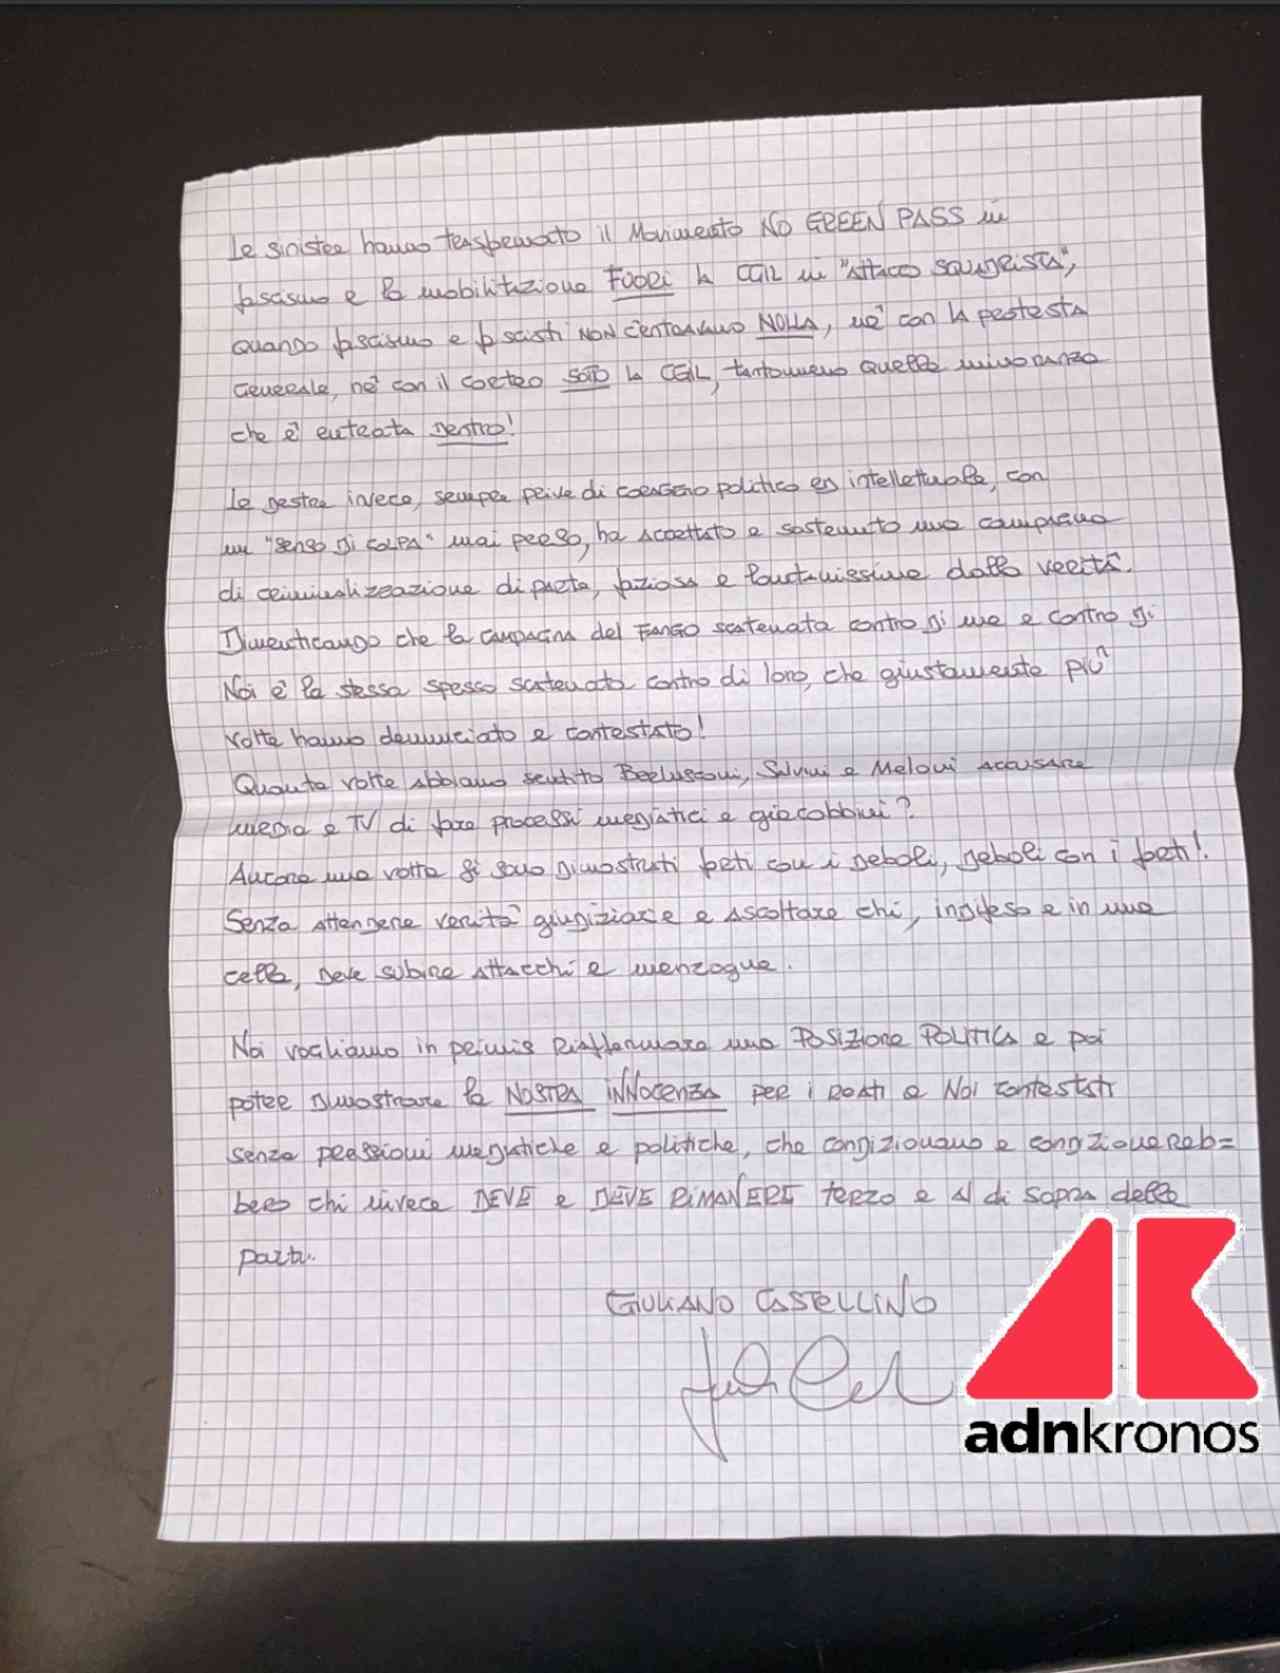 Le sinistre hanno trasformato il Movimento NO GREEN PASS in
fascismo e la mobilitazione FUORI la CGIL in "Attacco squadrista",
quando fascismo e fascisti NON c'entravano NULLA, nè con la protesta
Generale, nè con il corteo sotto la CGIL, tantomeno quella minoranza
che è entrata dentro!
Le destre invece, sempre prive di coraggio politico ed intellettuale, con
un "senso di colpa" mai perso, ha accettato e sostenuto una campagna
di criminalizzazione di parte, faziosa e lontanissima dalla verità.
Dimenticando che la campagna del FANGO scatenata contro di me e contro di
Noi è la stessa spesso scatenata contro di loro, che giustamente più
volte hanno denunciato e contestato!
Quante volte abbiamo sentito Berlusconi, Salvini e Meloni accusare
media e TV di fare processi mediatici e giacobbini?
Ancora una volta si sono dimostrati forti con i deboli, deboli con i forti!
Senza attendere verità giudiziarie e ascoltare chi, indifeso e in una
cella, deve subire attacchi e menzogne.
Noi vogliamo in primis riaffermare una POSIZIONE POLITICA e poi
poter dimostrare la NOSTRA INNOCENZA per i reati a Noi contestati
senza pressioni mediatiche e politiche, che condizionano e condizionereb=
bero chi invece DEVE e DEVE RIMANERE terzo e al di sopra delle
parti.
GIULIANO CASTELLINO
adnkronos